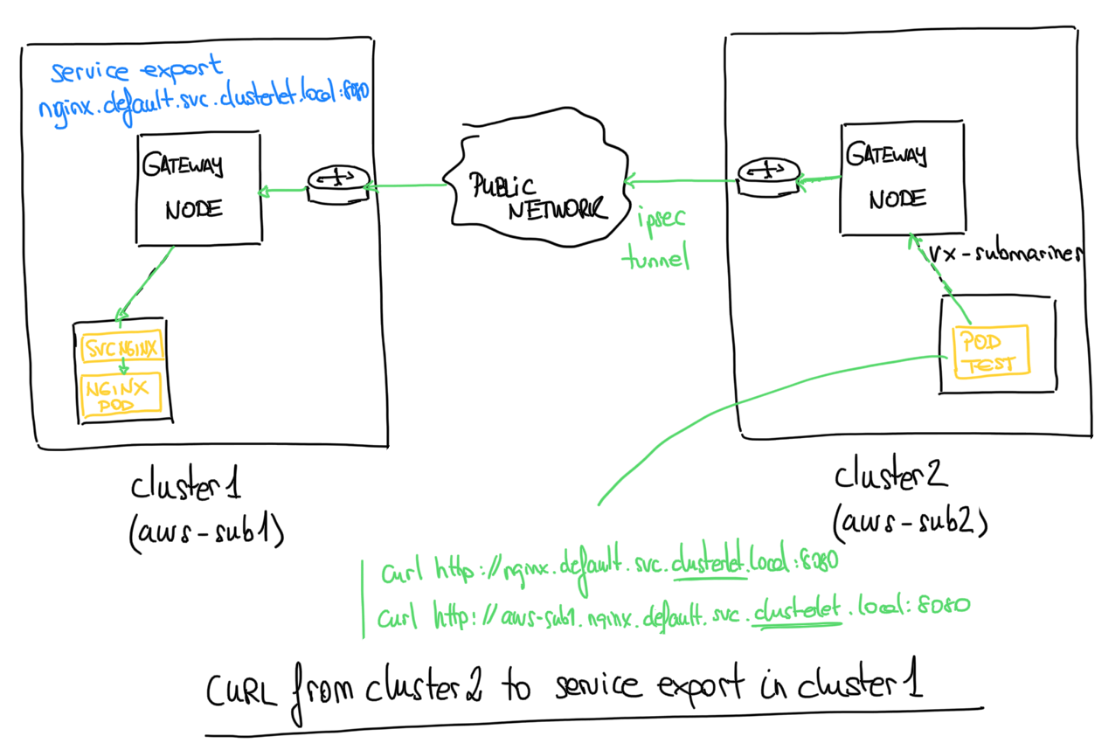 service export
nginx.default.svc.clusterlet.local:8080
GATEWAY
NODE
SVC NGINX
NGINX
POD
cluster1
(aws-sub1)
PUBLIC
NETWORK
ipsec
tunnel
GATEWAY
NODE
vx-submarines
POD
TEST
cluster2
(aws-sub2)
curl http://nginx.default.svc.clusterlet.local:8080
curl http://aws-sub1.nginx.default.svc.clusterlet.local:8080
CURL from cluster2 to service export in cluster1